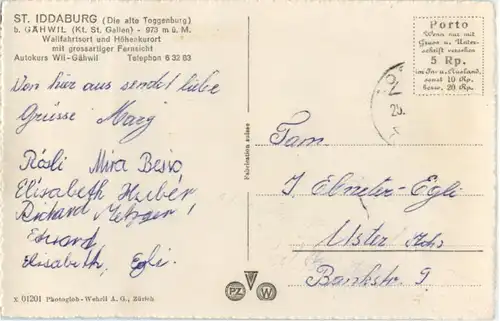 ST. IDDABURG (Die alte Toggenburg)
b. GÄHWIL (Kt. St. Gallen) - 973 m ü. M.
Wallfahrtsort und Höhenkurort
mit grossartiger Fernsicht
Autokurs Wil-Gähwil Telephon 6 32 83
Von hier aus sendet liebe
Grüsse Mary
Rösli Mira
Elisabeth Huber
Richard Metzger
Edward
Elisabeth Egli.
X 01201 Photoglob-Wehrli A. G., Zürich
Fabrication suisse
Porto
Wenn nur mit
Gruss u. Unter-
schrift versehen
5 Rp.
im In- u. Ausland,
sonst 10 Rp.
bezw. 20 Rp.
25.
Fam.
J. Ebneter-Egli
Uster
Bankstr. 9.
PZ W